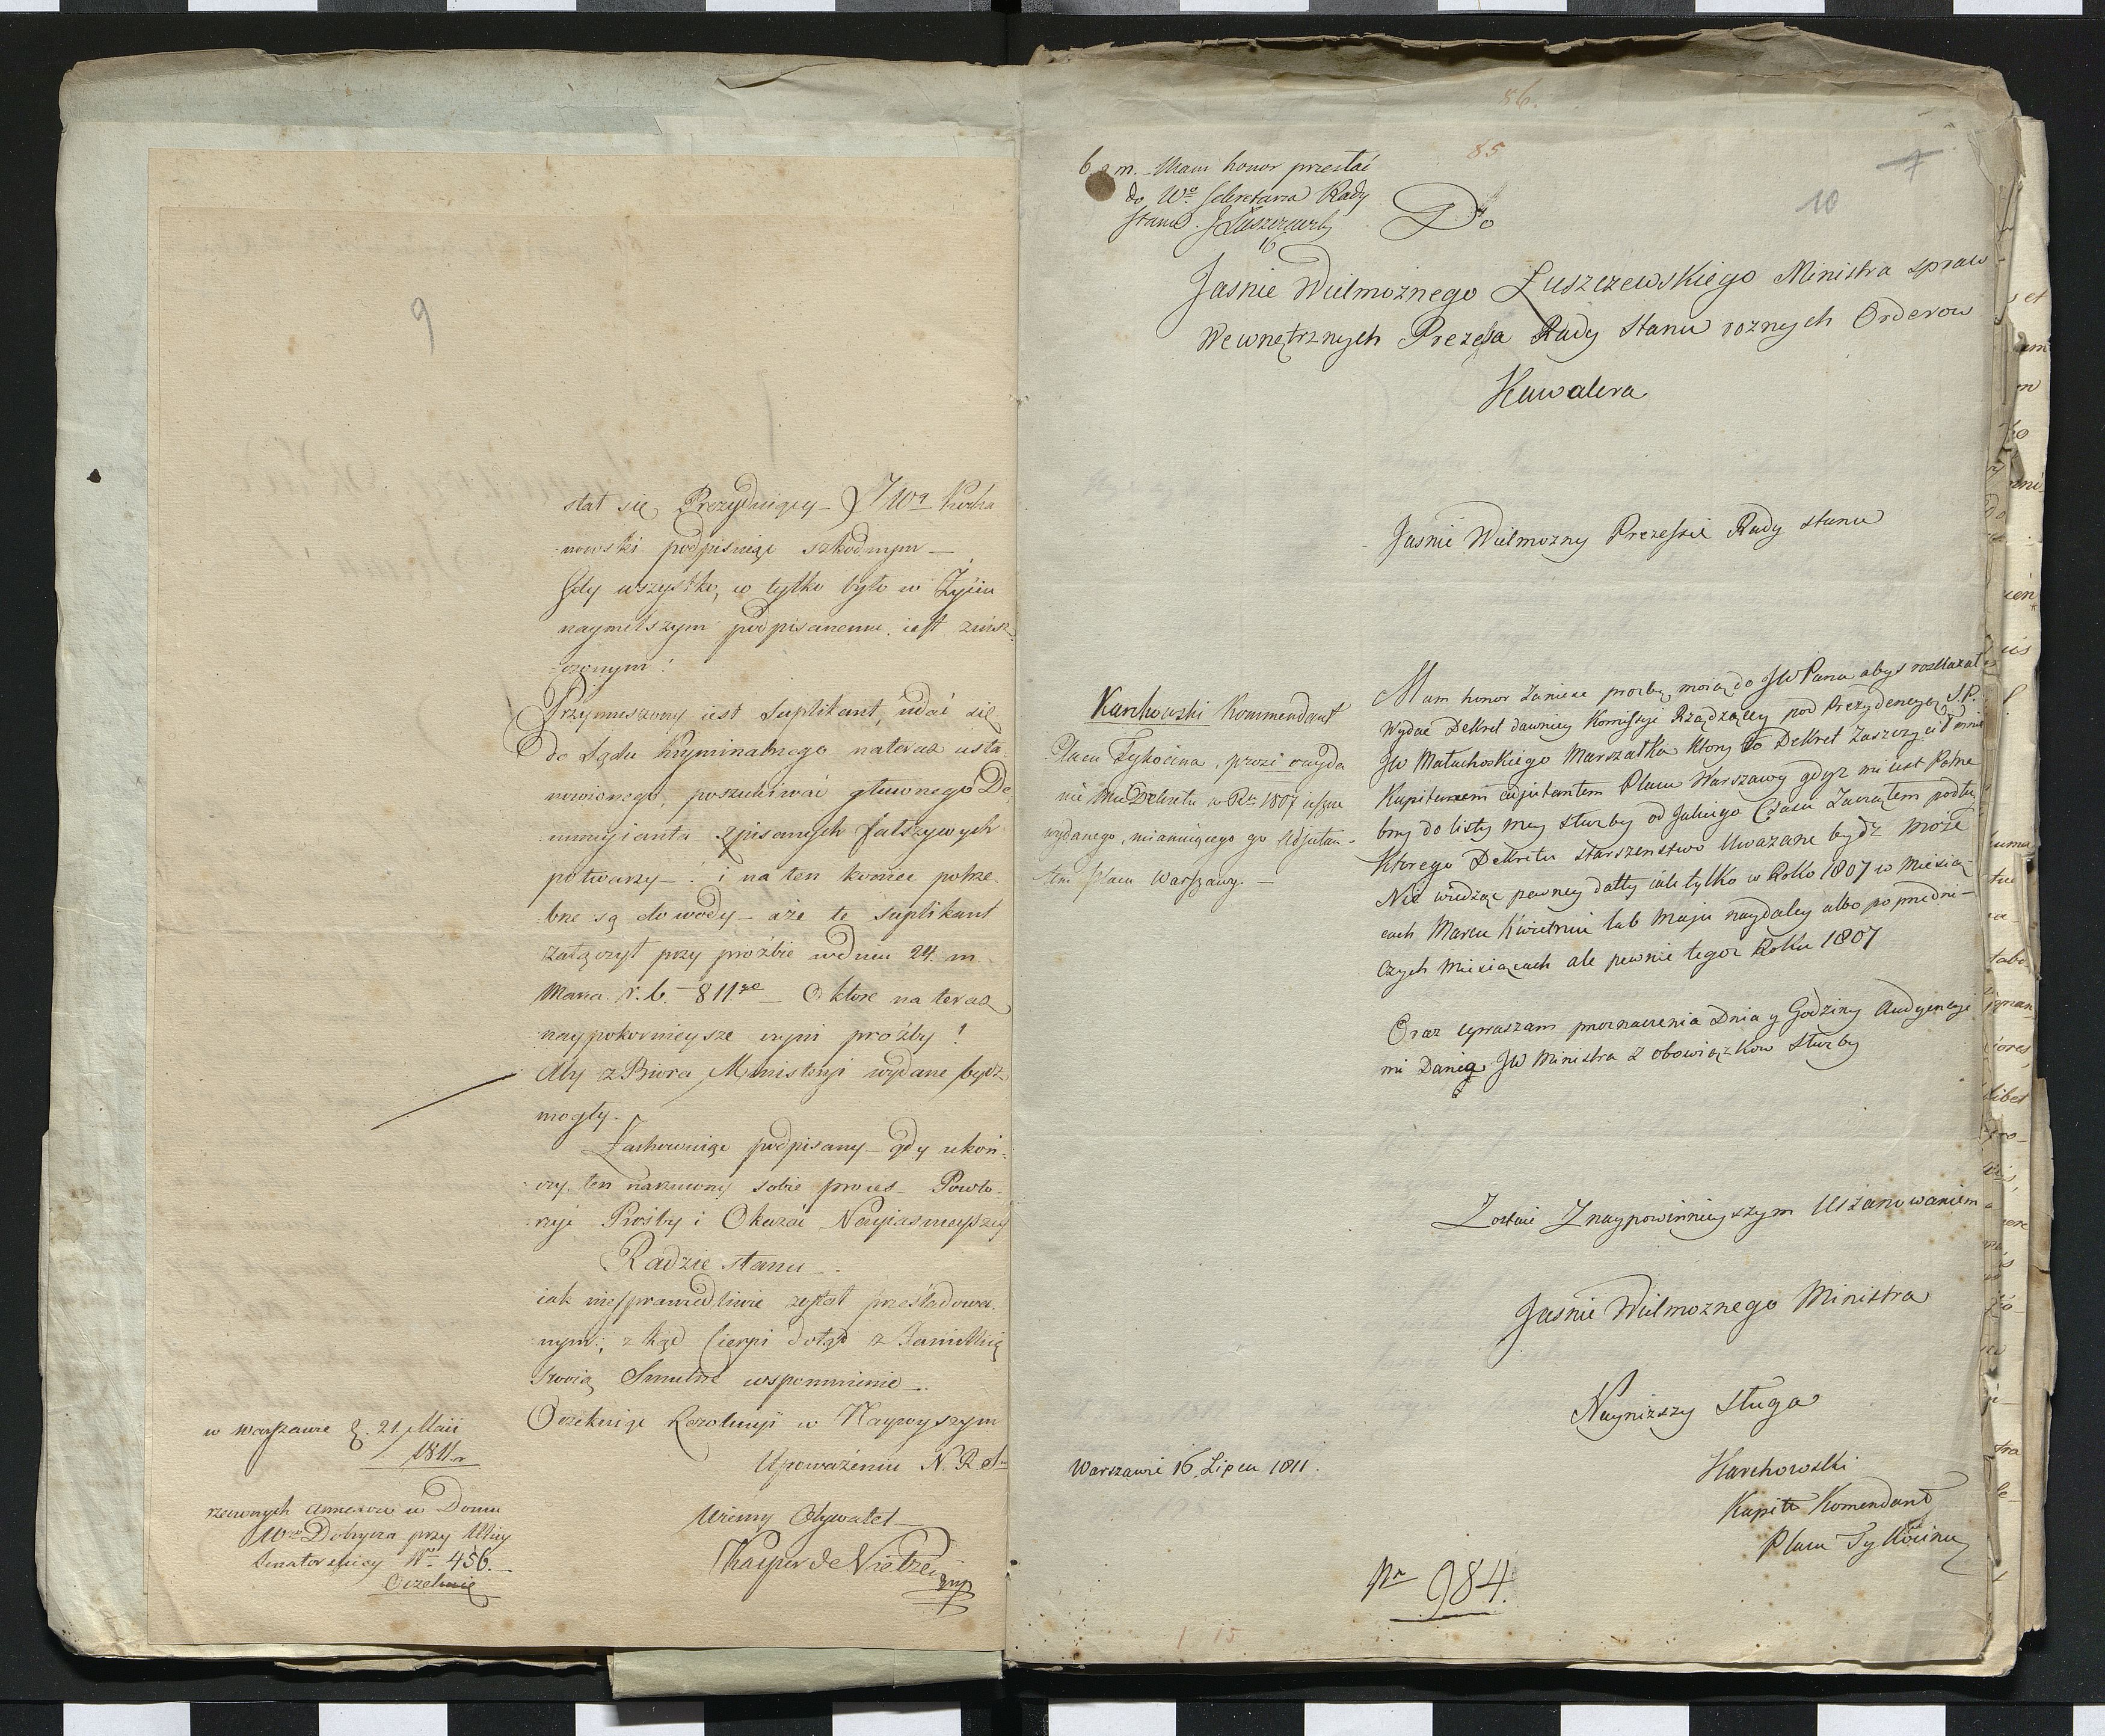 9
stał się Prezyduiący – JWny Kocha
nowski podpisuiąc szkodnym –
Gdy wszystko, co tylko było w Życiu
naymilszym podpisanemu, iest znisz
czonym!
Przymuszony iest Suplikant, udać się
do Sądu Kryminalnego nateraz usta
nowionego, poszukiwać głównego De
nuncyianta zpisanych fałszywych
potwarzy – : i na ten koniec potrze
bne są dowody – aże te suplikant
załączył przy proźbie w dniu 24. m.
Marca. r. b. 811.go – O które na teraz
naypokornieysze czyni proźby!
Aby z Biora Ministeryi wydane bydź
mogły.
Zachowuiąc podpisany – gdy ukoń
czy, ten nakazany sobie proces – Powtó
rzyć Prośby i Okazać Nayiaśnieyszey
Radzie stanu –.
iak niesprawiedliwie został prześladowa
nym; z kąd Cierpi dotąd z Familią
swoią Smutne wspomnienie –.
Oczekuiąc Rezolucyi w Naywyższym
Upoważeniu N. R. S.
w Warszawie d. 21 Maii
1811 r
Wierny Obywatel
Kasper de Nietze
rzeczonych annexow w Domu
Wgo Dobrycza przy Ulicy
Senatorskiey Nro 456. –
Oczekuię
86.
85
7
10
6 a m. Mam honor przesłać
do Wo Sekretarza Rady
Stanu. J Łuszczewski
16
Do
Jasnie Wielmoznego Łuszczewskiego Ministra spraw
Wewnętrznych Prezessa Rady Stanu roznych Orderow
Kawalera
Jasnie Wielmozny Prezessie Rady stanu
Karchowski Kommendant
Placu Tykocina, prosi o wyda
nie mu Dekretu w Rku 1807 ieszcze
wydanego, mianuiącego go Adjutan-
tem Placu Warszawy. –
Mam honor Zaniesc prozbę moią do JW Pana abys rozkazał
wydac Dekret dawniey Komissyi Rządzącey pod Prezydencyą S.P.
JW Małachoskiego Marszałka ktory to Dekret Zaszczycił mnie
Kapitanem adjutantem Placu Warszawy gdyz mi iest Potrze
bny do listy mey służby od Jakiego Czasu Zacząłem podłu
Ktorego Dekretu starszenstwo Uwazane bydz może
Nie wiedząc pewney datty iak tylko w Roku 1807 w Miesią
cach Marcu Kwietniu lub Maju naydaley albo poprzedni-
czych Miesiącach ale pewnie tegoz Roku 1807
Oraz upraszam przeznaczenia Dnia y Godziny Audyencyi
mi Danią JW Ministra z obowiązkow służby
Zostaie Z naypowinnieyszym Uszanowaniem
Jasnie Wielmoznego Ministra
Nayniższy Sługa
Karchowski
Kapitn Komendant
Placu Tykocina
Warszawie 16 Lipca 1811.
Nr 984.
1 15